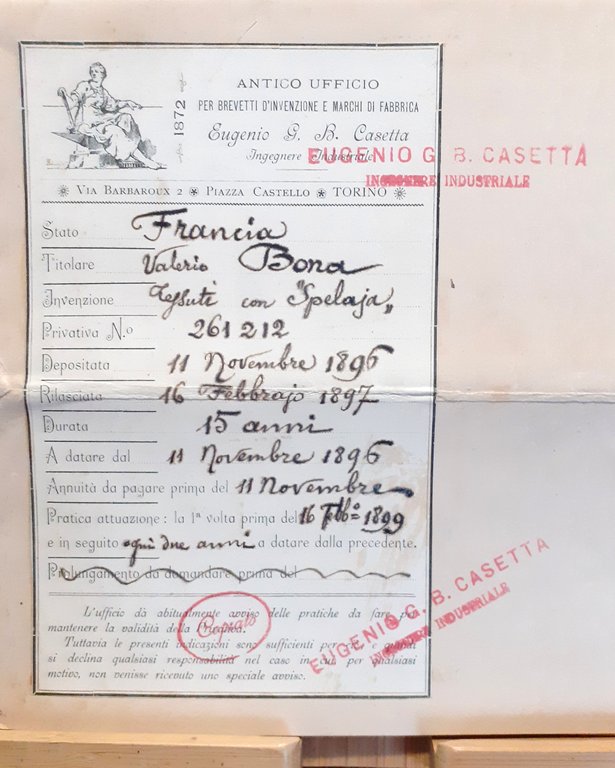 1872
ANTICO UFFICIO
PER BREVETTI D'INVENZIONE E MARCHI DI FABBRICA
Eugenio G. B. Casetta
Ingegnere Industriale
EUGENIO G. B. CASETTA
INGEGNERE INDUSTRIALE
VIA BARBAROUX 2 PIAZZA CASTELLO TORINO
Stato Francia
Titolare Valerio Bona
Invenzione Tessuti con "Spelaja"
Privativa N.º 261212
Depositata 11 Novembre 1896
Rilasciata 16 Febbrajo 1897
Durata 15 anni
A datare dal 11 Novembre 1896
Annuità da pagare prima del 11 Novembre
Pratica attuazione: la 1ª volta prima del 16 Febbº 1899
e in seguito ogni due anni a datare dalla precedente.
Prolungamento da domandare prima del
L'ufficio dà abitualmente avviso delle pratiche da fare per
mantenere la validità della Privativa.
Tuttavia le presenti indicazioni sono sufficienti per sé e quindi
si declina qualsiasi responsabilità nel caso in cui per qualsiasi
motivo, non venisse ricevuto uno speciale avviso.
Copiato
EUGENIO G. B. CASETTA
INGEGNERE INDUSTRIALE